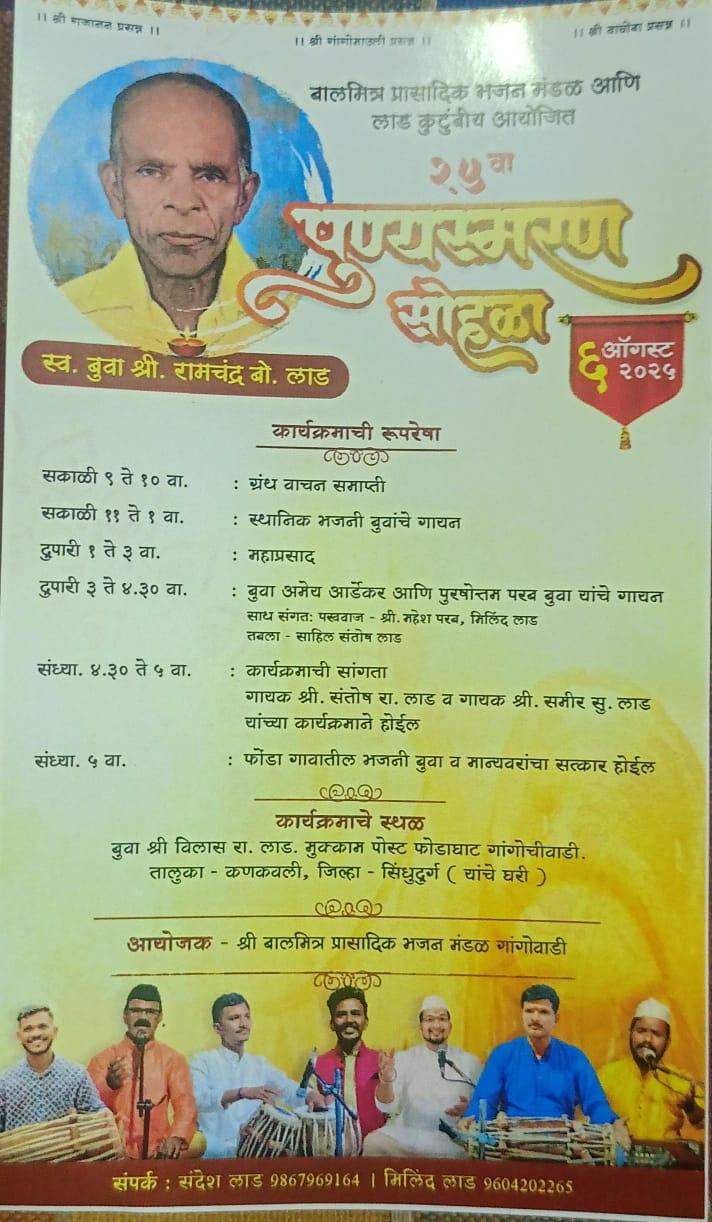 ।। श्री गजानन प्रसन्न ।।
।। श्री गांगोमाउली प्रसन्न ।।
।। श्री वाघोबा प्रसन्न ।।
बालमित्र प्रासादिक भजन मंडळ आणि
लाड कुटुंबीय आयोजित
२५ वा
पुण्यस्मरण
सोहळा
६ ऑगस्ट
२०२५
स्व. बुवा श्री. रामचंद्र बो. लाड
कार्यक्रमाची रूपरेषा
सकाळी ९ ते १० वा. : ग्रंथ वाचन समाप्ती
सकाळी ११ ते १ वा. : स्थानिक भजनी बुवांचे गायन
दुपारी १ ते ३ वा. : महाप्रसाद
दुपारी ३ ते ४.३० वा. : बुवा अमेय आर्डेकर आणि पुरषोत्तम परब बुवा यांचे गायन
साथ संगत: पखवाज - श्री. महेश परब, मिलिंद लाड
तबला - साहिल संतोष लाड
संध्या. ४.३० ते ५ वा. : कार्यक्रमाची सांगता
गायक श्री. संतोष रा. लाड व गायक श्री. समीर सु. लाड
यांच्या कार्यक्रमाने होईल
संध्या. ५ वा. : फोंडा गावातील भजनी बुवा व मान्यवरांचा सत्कार होईल
कार्यक्रमाचे स्थळ
बुवा श्री विलास रा. लाड. मुक्काम पोस्ट फोडाघाट गांगोचीवाडी.
तालुका - कणकवली, जिल्हा - सिंधुदुर्ग ( यांचे घरी )
आयोजक - श्री बालमित्र प्रासादिक भजन मंडळ गांगोवाडी
संपर्क : संदेश लाड 9867969164 | मिलिंद लाड 9604202265